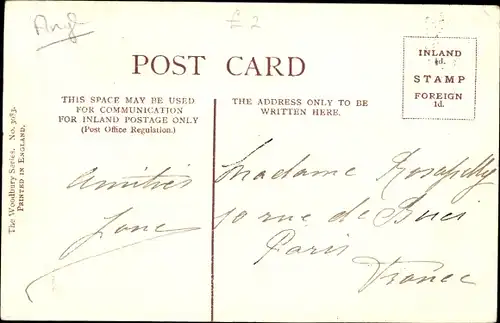 Angl
£2
POST CARD
THIS SPACE MAY BE USED
FOR COMMUNICATION
FOR INLAND POSTAGE ONLY
(Post Office Regulation.)
THE ADDRESS ONLY TO BE
WRITTEN HERE.
INLAND
½d.
STAMP
FOREIGN
1d.
The Woodbury Series. No. 3083.
PRINTED IN ENGLAND.
Amitiés
Jane
Madame
10 rue de Buci
Paris
France